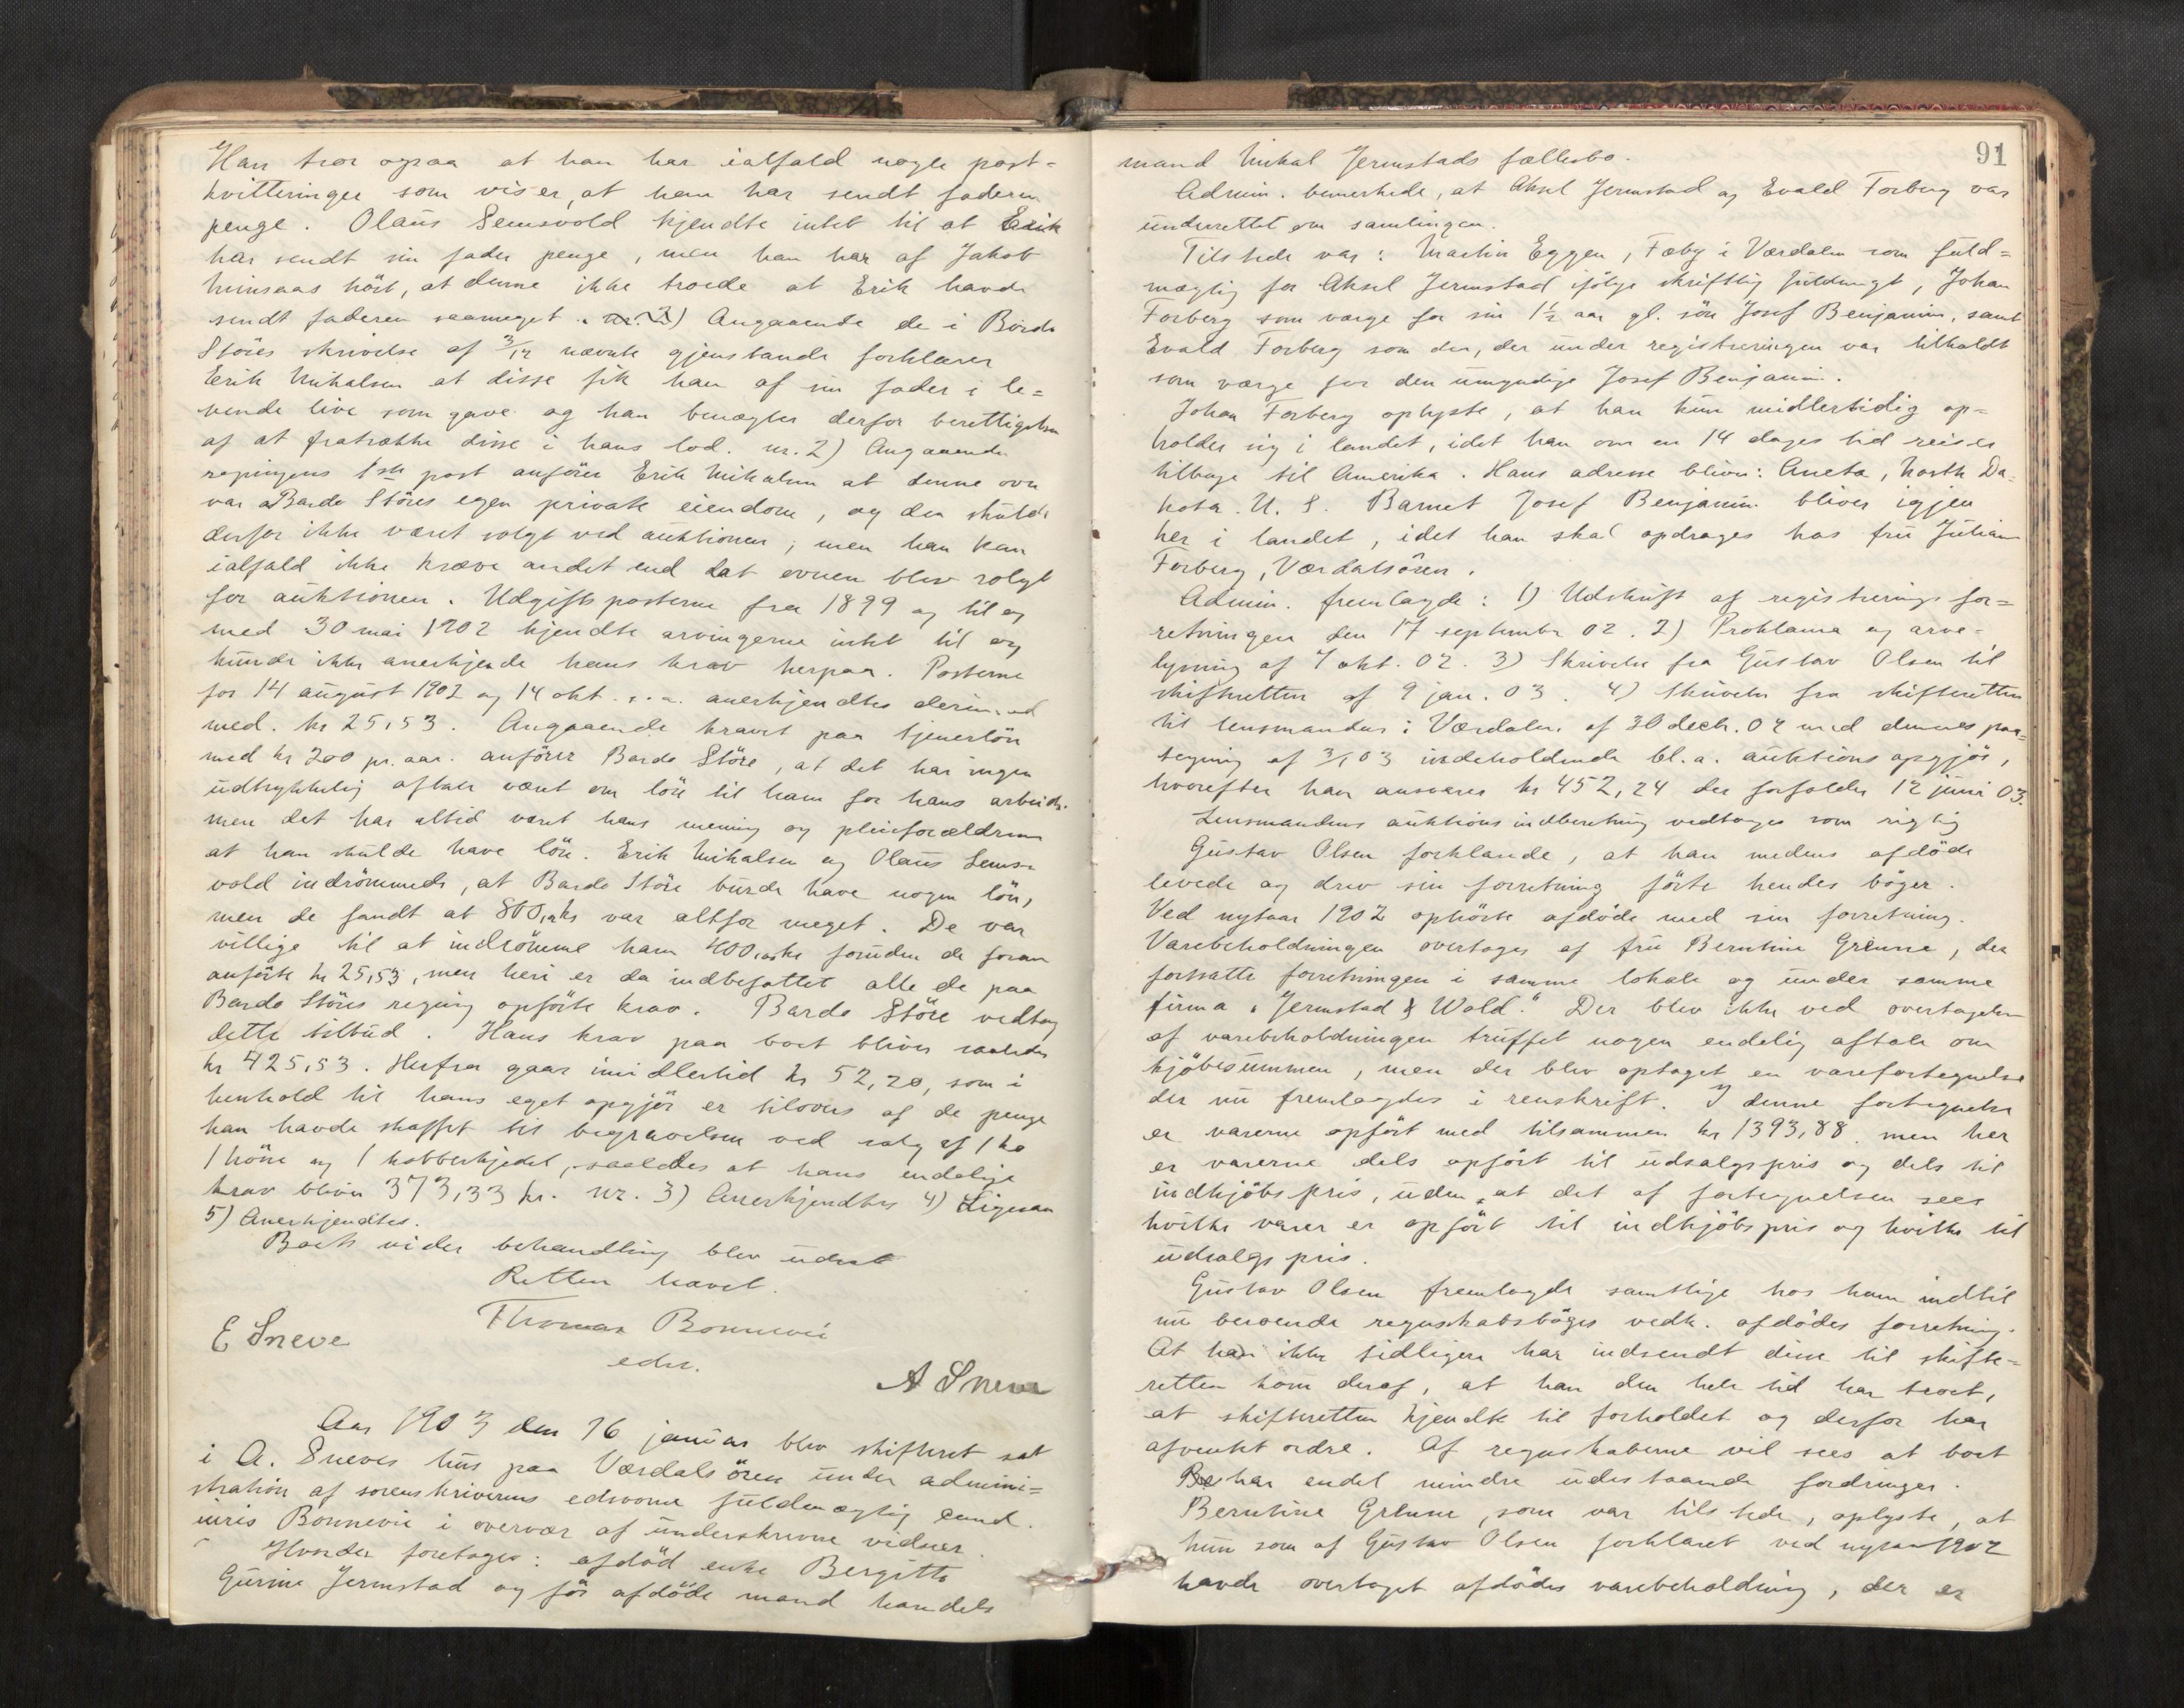 Han tror ogsaa at han har ialfald nogle post=
kvitteringer som viser, at han har sendt faderen
penge. Olaüs Semsvold kjendte intet til at Erik
har sendt sin fader penge, men han har af Jakob
hört, at denne ikke troede at Erik havde
sendt faderen saameget. Angaaende de i Bardo
Störes skrivelse af 3/12 nævnte gjenstande forklarer
Erik Mikalsen at disse fik han af sin fader i le=
vende live som gave og han benægter derfor berettigelsen
af at fratrække disse i hans lod. nr. 2) Angaaende
regningens 1ste post anförer Erik Mikalsen at denne ovn
var Bardo Störes egen private eiendom, og den skülde
derfor ikke været solgt ved aüktionen; men han kan
ialfald ikke kræve andet end dat ovnen blev solgt
for aüktionen. Udgiftsposterne fra 1899 og til og
med 30 mai 1902 kjendte arvingerne intet til og
künde ikke anerkjende hans krav herpaa. Posterne
for 14 aügüst 1902 og 14 okt. s. a. anerkjendtes derimod
med kr 25,53. Angaaende kravet paa tjenerlön
med kr 200 pr. aar. anförer Bardo Störe, at det har ingen
üdtrykkelig aftale været om lön til ham for hans arbeide.
men det har altid været hans mening og pleieforældrene
at han skülde have lön. Erik Mikalsen og Olaüs Sems-
vold indrömmede, at Bardo Störe bürde have nogen lön,
men de fandt at 800,00 kr var altfor meget. De var
villige til at indrömme ham 400,00 kr foruden de foran
anförte kr 25,53, men heri er da indbefattet alle de paa
Bardo Störes regning opförte krav. Bardo Störe vedtog
dette tilbüd. Hans krav paa boet bliver saaledes
kr 425,53. Herfra gaar imidlertid kr 52,20, som i
henhold til hans eget opgjör er tilovers af de penge
han havde skaffet til begravelsen ved salg af 1 ko
1 höne og 1 kobberkjedel, saaledes at hans endelige
krav bliver 373,33 kr. nr. 3) Anerkjendtes 4) Ligesaa
5) Anerkjendtes.
Boets videre behandling blev üdsat
Retten hævet.
Thomas Bonnevie
edsv.
E Sneve
A Sneve
Aar 1903 den 16 janüar blev skifteret sat
i A. Sneves hüs paa Værdalsören ünder admini=
stration af sorenskriverens edsvorne füldmægtig cand.
iüris Bonnevie i overvær af ünderskrevne vidner.
Hvorder foretoges: afdöd enke Bergitte
Gürine Jermstad og för afdöde mand handels
91
mand Mikal Jermstads fællesbo.
Admin. bemerkede, at Aksel Jermstad og Evald Forberg var
ünderrettet om samlingen.
Tilstede var: Martin Eggen, Fæby i Værdalen som füld=
mægtig for Aksel Jermstad ifölge skriftlig füldmagt, Johan
Forberg som værge for sin 1½ aar gl. sön Josef Benjamin, samt
Evald Forberg som den, der ünder registreringen var tilkaldt
som værge for den ümyndige Josef Benjamin.
Johan Forberg oplyste, at han kün midlertidig op=
holder sig i landet, idet han om en 14 dages tid reiser
tilbage til Amerika. Hans adresse bliver: Aneta, North Da=
kota. U. S. Barnet Josef Benjamin bliver igjen
her i landet, idet han skal opdrages hos frü Jüliane
Forberg, Værdalsören.
Admin. fremlagde: 1) Udskrift af registreringsfor=
retningen den 17 september 02. 2) Proklama og arve-
lysning af 7 okt. 02. 3) Skrivelse fra Güstav Olsen til
skifteretten af 9 jan. 03. 4) Skrivelse fra skifteretten
til lensmanden i Værdalen af 30 decbr. 02 med dennes paa=
tegning af 3/1 03 indeholdende bl. a. aüktionsopgjör,
hvorefter han ansvarer kr 452,24 der forfalder 12 jüni 03.
Lensmandens aüktionsindberetning vedtoges som rigtig
Güstav Olsen forklarede, at han medens afdöde
levede og drev sin forretning förte hendes böger.
Ved nytaar 1902 ophörte afdöde med sin forretning.
Varebeholdningen overtoges af frü Berntine Grinne, der
fortsatte forretningen i samme lokale og ünder samme
firma "Jermstad & Wold." Der blev ikke ved overtagelsen
af varebeholdningen trüffet nogen endelig aftale om
kjöbesümmen, men der blev optaget en varefortegnelse
der nü fremlagdes i renskrift. I denne fortegnelse
er varerne opfört med tilsammen kr 1393,88. men her
er varerne dels opfört til üdsalgspris og dels til
indkjöbspris, üden at det af fortegnelsen sees
hvilke varer er opfört til indkjöbspris og hvilke til
üdsalgspris.
Güstav Olsen fremlagde samtlige hos ham indtil
nü beroende regnskabsböger vedk. afdödes forretning.
At han ikke tidligere har indsendt disse til skifte=
retten kom deraf, at han den hele tid har troet,
at skifteretten kjendte til forholdet og derfor har
afventet ordre. Af regnskaberne vil sees at boet
har endel mindre üdestaaende fordringer.
Berntine Grinne, som var tilstede, oplyste, at
hün som af Güstav Olsen forklaret ved nytaar 1902
havde overtaget afdödes varebeholdning, der er